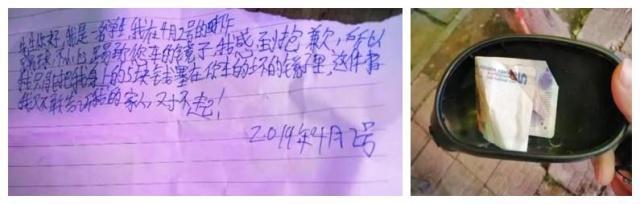 你好,我是一名学生,我在4月2号的时候
不小心踢坏你车的镜子,我感到抱歉,所以
我只好把我身上的5块钱塞在你车的坏的镜子里,这件事
我又不敢告诉我的家人,对不起!
2019年4月2号
5